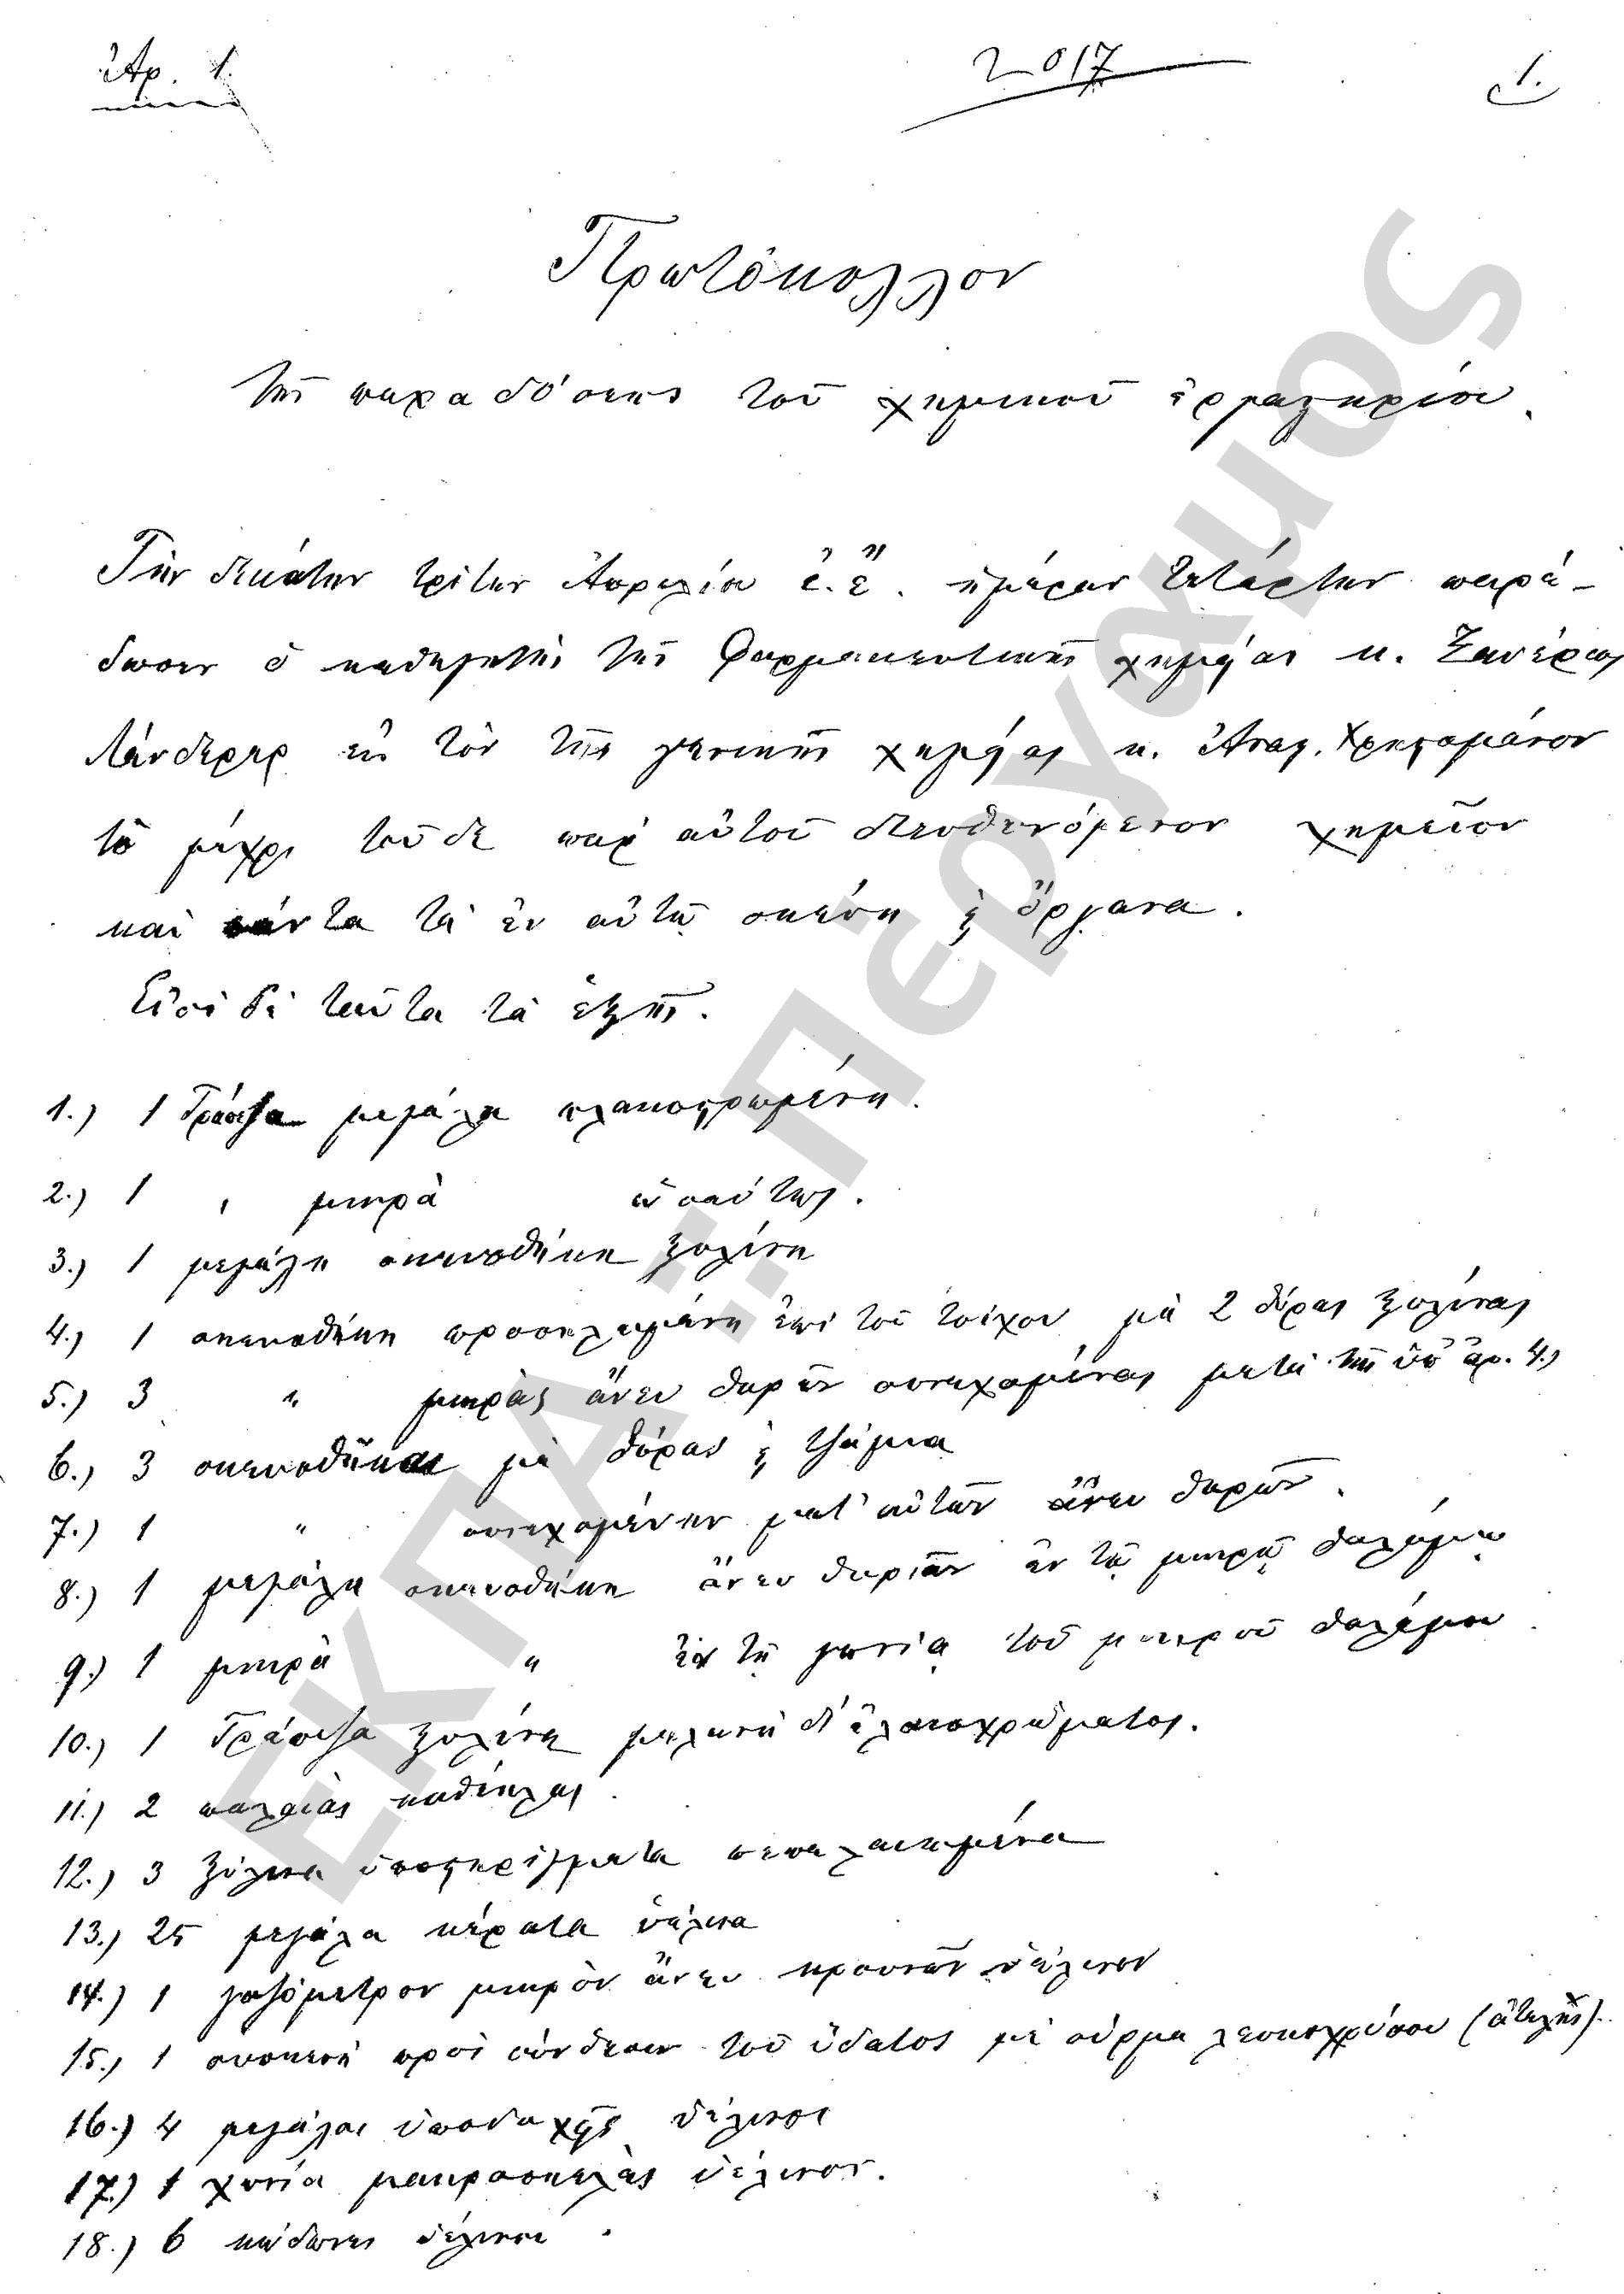 Ἀρ. 1. 2017 1.
Πρωτόκολλον
τῆς παραδόσεως τοῦ χημικοῦ ἐργαστηρίου.
Τὴν δεκάτην τρίτην Ἀπριλίου ἐ.ἔ. ἡμέραν τετάρτην παρέ-
δωσεν ὁ καθηγητὴς τῆς Φαρμακευτικῆς χημείας κ. Ξαυέριος
Λάνδερερ εἰς τὸν τῆς γενικῆς χημείας κ. Ἀνας. Χρηστομάνον
τὸ μέχρι τοῦδε παρ' αὐτοῦ διευθυνόμενον χημεῖον
καὶ πάντα τὰ ἐν αὐτῷ σκεύη ϗ ὄργανα.
Εἰσὶ δὲ ταῦτα τὰ ἑξῆς.
1.) 1 Τράπεζα μεγάλη πλακοστρωμένη.
2.) 1 " μικρὰ ὡσαύτως.
3.) 1 μεγάλη σκευοθήκη ξυλίνη
4.) 1 σκευοθήκη προσηλωμένη ἐπὶ τοῦ τοίχου μὲ 2 θύρας ξυλίνας
5.) 3 " μικρὰς ἄνευ θυρῶν συνεχομένας μετὰ τῆς ὑπ' ἀρ. 4.)
6.) 3 σκευοθῆκαι μὲ θύρας ϗ τζάμια
7.) 1 " συνεχομένην μετ' αὐτῶν ἄνευ θυρῶν.
8.) 1 μεγάλη σκευοθήκη ἄνευ θυρῶν ἐν τῷ μικρῷ θαλάμῳ
9.) 1 μικρὰ " ἐν τῇ γωνίᾳ τοῦ μικροῦ θαλάμου
10.) 1 Τράπεζα ξυλίνη μελανὴ δι' ἐλαιοχρώματος.
11.) 2 παλαιὰς καθέκλας
12.) 3 ξύλινα ὑποστηρίγματα πεπαλαιωμένα
13.) 25 μεγάλα κέρατα ὑάλινα
14.) 1 γαζόμετρον μικρὸν ἄνευ κρουνῶν ὑάλινον
15.) 1 συσκευὴ πρὸς σύνθεσιν τοῦ ὕδατος μὲ σύρμα λευκοχρύσου (ἀτελής).
16.) 4 μεγάλοι ὑποδοχεῖς ὑάλινοι
17.) 1 χωνία μακροσκελὲς ὑάλινον.
18.) 6 κώδωνες ὑάλινοι.
ΕΚΠΑ:: Πέργαμος